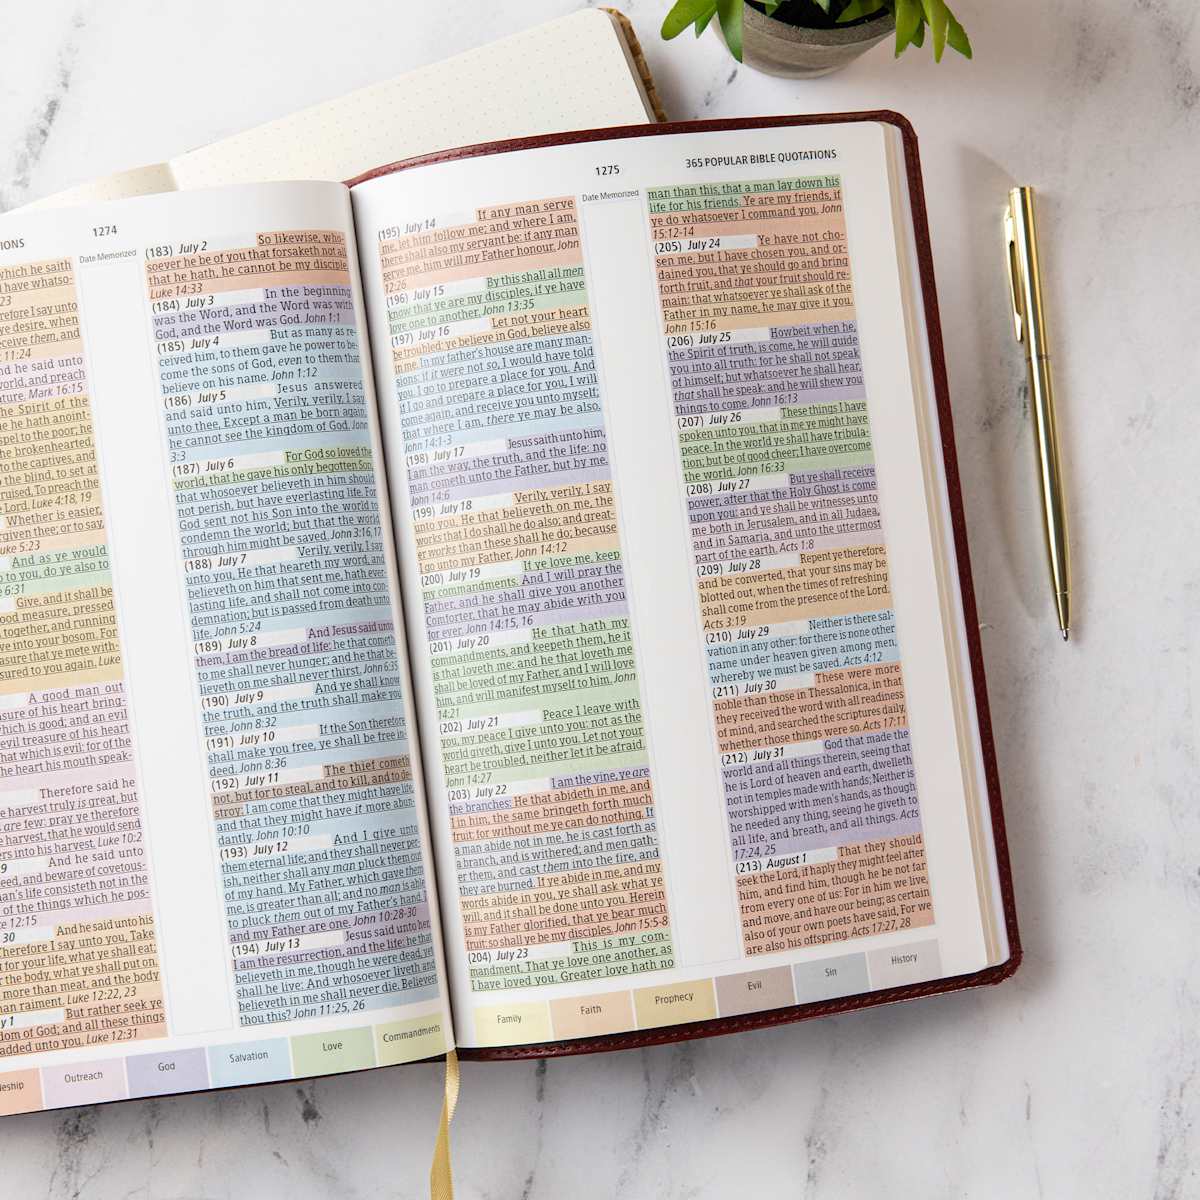 IONS
1274
which he saith
have whatso-
23
refore I say unto
ye desire, when
receive them, and
11:24
nd he said unto
world, and preach
ature. Mark 16:15
the Spirit of the
he hath anoint-
spel to the poor; he
the brokenhearted,
to the captives, and
to the blind, to set at
ruised, To preach the
Lord. Luke 4:18, 19
Whether is easier,
rgiven thee; or to say,
uke 5:23
And as ye would
o to you, do ye also to
6:31
Give, and it shall be
ood measure, pressed
together, and running
ve into your bosom. For
asure that ye mete with-
sured to you again. Luke
A good man out
asure of his heart bring-
which is good; and an evil
evil treasure of his heart
that which is evil: for of the
the heart his mouth speak-
Therefore said he
he harvest truly is great, but
are few: pray ye therefore
e harvest, that he would send
ers into his harvest. Luke 10:2
9 And he said unto
eed, and beware of covetous-
an's life consisteth not in the
of the things which he pos-
e 12:15
30 And he said unto his
Therefore I say unto you, Take
for your life, what ye shall eat;
r the body, what ye shall put on.
more than meat, and the body
han raiment. Luke 12:22, 23
y 1 But rather seek ye
dom of God; and all these things
added unto you. Luke 12:31
Date Memorized
(183) July 2 So likewise, who-
soever he be of you that forsaketh not all
that he hath, he cannot be my disciple.
Luke 14:33
(184) July 3 In the beginning
was the Word, and the Word was with
God, and the Word was God. John 1:1
(185) July 4 But as many as re-
ceived him, to them gave he power to be-
come the sons of God, even to them that
believe on his name. John 1:12
(186) July 5 Jesus answered
and said unto him, Verily, verily, I say
unto thee, Except a man be born again,
he cannot see the kingdom of God. John
3:3
(187) July 6 For God so loved the
world, that he gave his only begotten Son,
that whosoever believeth in him should
not perish, but have everlasting life. For
God sent not his Son into the world to
condemn the world; but that the world
through him might be saved. John 3:16, 17
(188) July 7 Verily, verily, I say
unto you, He that heareth my word, and
believeth on him that sent me, hath ever-
lasting life, and shall not come into con-
demnation; but is passed from death unto
life. John 5:24
(189) July 8 And Jesus said unto
them, I am the bread of life: he that cometh
to me shall never hunger; and he that be-
lieveth on me shall never thirst. John 6:35
(190) July 9 And ye shall know
the truth, and the truth shall make you
free. John 8:32
(191) July 10 If the Son therefore
shall make you free, ye shall be free in-
deed. John 8:36
(192) July 11 The thief cometh
not, but for to steal, and to kill, and to de-
stroy: I am come that they might have life,
and that they might have it more abun-
dantly. John 10:10
(193) July 12 And I give unto
them eternal life; and they shall never per-
ish, neither shall any man pluck them out
of my hand. My Father, which gave them
me, is greater than all; and no man is able
to pluck them out of my Father's hand. I
and my Father are one. John 10:28-30
(194) July 13 Jesus said unto her,
I am the resurrection, and the life: he that
believeth in me, though he were dead, yet
shall he live: And whosoever liveth and
believeth in me shall never die. Believest
thou this? John 11:25, 26
leship
Outreach
God
Salvation
Love
Commandments
1275
365 POPULAR BIBLE QUOTATIONS
(195) July 14 If any man serve
me, let him follow me; and where I am,
there shall also my servant be: if any man
serve me, him will my Father honour. John
12:26
(196) July 15 By this shall all men
know that ye are my disciples, if ye have
love one to another. John 13:35
(197) July 16 Let not your heart
be troubled: ye believe in God, believe also
in me. In my father's house are many man-
sions: if it were not so, I would have told
you. I go to prepare a place for you. And
if I go and prepare a place for you, I will
come again, and receive you unto myself;
that where I am, there ye may be also.
John 14:1-3
(198) July 17 Jesus saith unto him,
I am the way, the truth, and the life: no
man cometh unto the Father, but by me.
John 14:6
(199) July 18 Verily, verily, I say
unto you, He that believeth on me, the
works that I do shall he do also; and great-
er works than these shall he do; because
I go unto my Father. John 14:12
(200) July 19 If ye love me, keep
my commandments. And I will pray the
Father, and he shall give you another
Comforter, that he may abide with you
for ever. John 14:15, 16
(201) July 20 He that hath my
commandments, and keepeth them, he it
is that loveth me: and he that loveth me
shall be loved of my Father, and I will love
him, and will manifest myself to him. John
14:21
(202) July 21 Peace I leave with
you, my peace I give unto you: not as the
world giveth, give I unto you. Let not your
heart be troubled, neither let it be afraid.
John 14:27
(203) July 22 I am the vine, ye are
the branches: He that abideth in me, and
I in him, the same bringeth forth much
fruit: for without me ye can do nothing. If
a man abide not in me, he is cast forth as
a branch, and is withered; and men gath-
er them, and cast them into the fire, and
they are burned. If ye abide in me, and my
words abide in you, ye shall ask what ye
will, and it shall be done unto you. Herein
is my Father glorified, that ye bear much
fruit; so shall ye be my disciples. John 15:5-8
(204) July 23 This is my com-
mandment, That ye love one another, as
I have loved you. Greater love hath no
Date Memorized
man than this, that a man lay down his
life for his friends. Ye are my friends, if
ye do whatsoever I command you. John
15:12-14
(205) July 24 Ye have not cho-
sen me, but I have chosen you, and or-
dained you, that ye should go and bring
forth fruit, and that your fruit should re-
main: that whatsoever ye shall ask of the
Father in my name, he may give it you.
John 15:16
(206) July 25 Howbeit when he,
the Spirit of truth, is come, he will guide
you into all truth: for he shall not speak
of himself; but whatsoever he shall hear,
that shall he speak: and he will shew you
things to come. John 16:13
(207) July 26 These things I have
spoken unto you, that in me ye might have
peace. In the world ye shall have tribula-
tion; but be of good cheer; I have overcome
the world. John 16:33
(208) July 27 But ye shall receive
power, after that the Holy Ghost is come
upon you: and ye shall be witnesses unto
me both in Jerusalem, and in all Judaea,
and in Samaria, and unto the uttermost
part of the earth. Acts 1:8
(209) July 28 Repent ye therefore,
and be converted, that your sins may be
blotted out, when the times of refreshing
shall come from the presence of the Lord.
Acts 3:19
(210) July 29 Neither is there sal-
vation in any other: for there is none other
name under heaven given among men,
whereby we must be saved. Acts 4:12
(211) July 30 These were more
noble than those in Thessalonica, in that
they received the word with all readiness
of mind, and searched the scriptures daily,
whether those things were so. Acts 17:11
(212) July 31 God that made the
world and all things therein, seeing that
he is Lord of heaven and earth, dwelleth
not in temples made with hands; Neither is
worshipped with men's hands, as though
he needed any thing, seeing he giveth to
all life, and breath, and all things. Acts
17:24, 25
(213) August 1 That they should
seek the Lord, if haply they might feel after
him, and find him, though he be not far
from every one of us: For in him we live,
and move, and have our being; as certain
also of your own poets have said, For we
are also his offspring. Acts 17:27, 28
Family
Faith
Prophecy
Evil
Sin
History